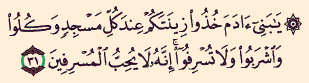 ۞ يَٰبَنِىٓ ءَادَمَ خُذُوا۟ زِينَتَكُمْ عِندَ كُلِّ مَسْجِدٍ وَكُلُوا۟
وَٱشْرَبُوا۟ وَلَا تُسْرِفُوٓا۟ ۚ إِنَّهُۥ لَا يُحِبُّ ٱلْمُسْرِفِينَ ٣١